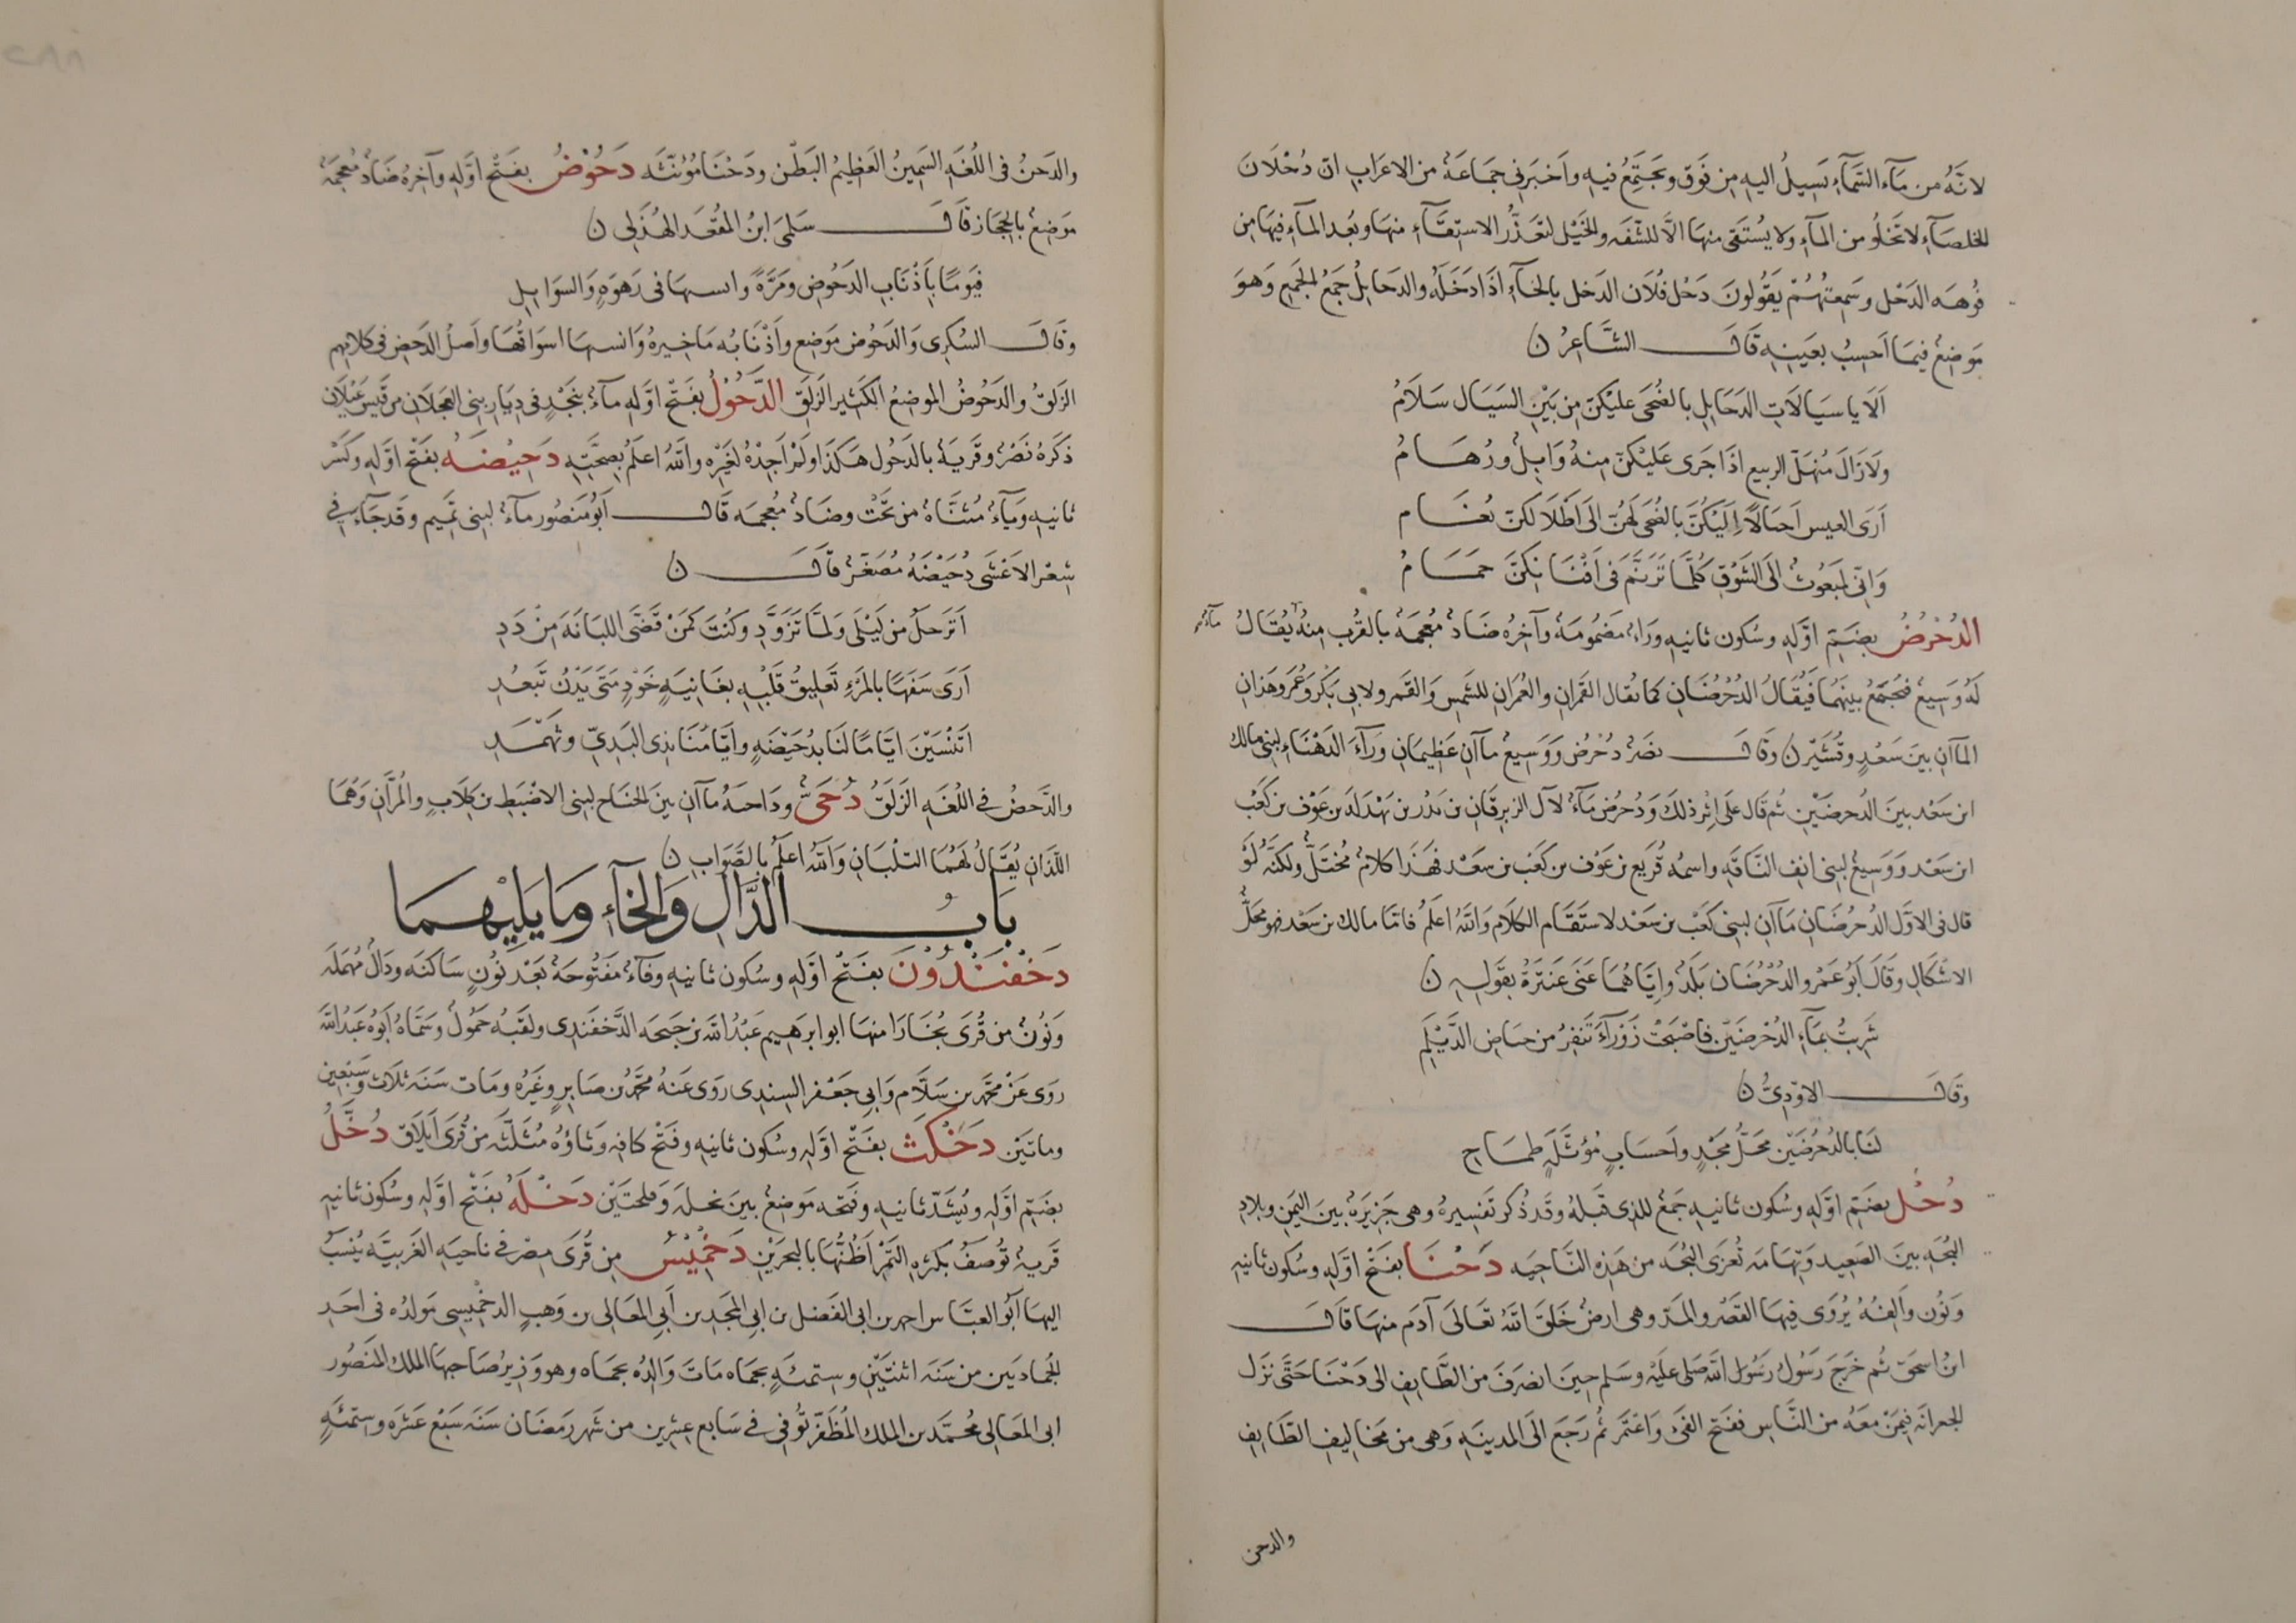 لانّه من مآء السّمآء يسيل اليه من فوق ويجتمع فيه وأخبرنى جماعة من الاعراب ان دحلان
الخلصآء لا تخلو من المآء ولا يستقى منها الّا للشّفه والخيل لتعذّر الاستقآء منها وبُعد المآء فيها من
فوهه الدّحل وسمعتهم يقولون دحل فلان الدحل بالحآء اذا دخله والدحايل جمع الجميع وهو
موضع فيما احسب بعينه قال الشّاعر ن
الا يا سيالات الدحايل بالضّحى عليكنّ من بين السيال سلام
ولا زال منهلّ الربيع اذا جرى عليكنّ منه وابل ورهام
أرى العيس احبالًا اليكنّ بالضّحى لهنّ الى اطلالكنّ بغام
وانّى لمبعوث الى الشّوق كلّما ترنّم فى افنانكنّ حمام
الدُحْرُضُ بضمّ اوّله وسكون ثانيه وراء مضمومة وآخره ضاد معجمة بالقرب منه يقال
مآء
له وسيع فتجمع بينهما فيقال الدحرضان كما يقال القمران والعمران للشّمس والقمر ولابى بكر وعمر وهذان
المآان بين سعد وقشير ن وقال نصر دحرض ووسيع مآان عظيمان ورآء الدهنآء لبنى مالك
ابن سعد بين الدحرضين ثم قال على اثر ذلك ودحرض مآء لآل الزبرقان بن بدر بن بهدلة بن عوف بن كعب
ابن سعد ووسيع لبنى انف النّاقة واسمه قريع بن عوف بن كعب بن سعد فهذا كلام مختلّ ولكنّه لو
قال فى الاوّل الدحرضان مآان لبنى كعب بن سعد لاستقام الكلام والله اعلم فامّا مالك بن سعد فهو محلّ
الاشكال وقال ابو عمرو الدحرضان بلد وايّاهما عنى عنترة بقوله ن
شربت بمآء الدحرضين فاصبحت زورآء تنفر من حياض الدّيلم
وقال الاودىّ ن
لنا بالدحرضين محلّ مجد واحساب مؤثّلة طماح
دُحْل بضمّ اوّله وسكون ثانيه جمع للذى قبله وقد ذكر تفسيره وهى جزيرة بين اليمن وبلاد
البجه بين الصعيد وتهامه تغزى البجه من هذه النّاحيه دَحْنَا بفتح اوّله وسكون ثانيه
ونون والفه يروى فيها القصر والمدّ وهى ارض خلق الله تعالى آدم منها قال
ابن اسحق ثم خرج رسول رسول الله صلى عليه وسلم حين انصرف من الطّايف الى دحنا حتّى نزل
الجعرانه فيمن معه من النّاس ففتح الفى واعتمر ثم رجع الى المدينه وهى من مخاليف الطّايف
والدحن
والدحن فى اللّغه السّمين العظيم البطن ودحنا مؤنّثه دَحُوْضُ بفتح اوّله وآخره ضاد معجمة
موضع بالحجاز قال سلمى ابن المقعد الهذلى ن
فيومًا باذناب الدحوض ومرّة وانسها فى رهوة والسوايل
وقال السكرى والدحوض موضع واذنابه مآخيره وانسها اسواقها واصل الدحض فى كلامهم
الزلق والدحوض الموضع الكثير الزلق الدَّحُوْلُ بفتح اوّله مآء بنجد فى ديار بنى العجلان من قيس عيلان
ذكره نصر وقرية بالدحول هكذا ولم اجده لغيره والله اعلم بصحّته دَحِيْضَهُ بفتح اوّله وكسر
ثانيه ويآء مثنّاة من تحت وضاد معجمه قال ابو منصور مآء لبنى تميم وقد جآء فى
شعر الاعشى دحيضه مصغّر قال ن
اترحل من ليلى ولمّا تزوّد وكنت كمن قضّى اللبانة من دد
أرى سفهًا بالمرء تعليق قلبه بغانية خود متى يدن تبعد
اتنسين ايّامًا لنا بدحيضة وايّامنا بذى البدىّ وثهمد
والدّحض فى اللّغه الزلق دُحَىّ وداحه مآان بين الجناح لبنى الاضبط بن كلاب والمرّان وهما
اللّذان يقال لهما التلبان والله اعلم بالصّواب ن
باب الدّال والخآء وما يليهما
دَخْفَنْدُوْنَ بفتح اوّله وسكون ثانيه وفآء مفتوحة بعد نون ساكنه ودال مهملة
ونون من قرى بخارا منها ابو ابرهيم عبد الله بن جبحه الدّخفندى ولقبه حمول وسمّاه ابوه عبد الله
روى عن محمّد بن سلّام وابى جعفر السندى روى عنه محمّد بن صابر وغيره ومات سنه ثلاث وسبعين
وماتين دَخْكَث بفتح اوّله وسكون ثانيه وفتح كافه وثاؤه مثلّثه من قرى ايلاق دُخَّلُ
بضمّ اوّله وتشدّ ثانيه وفتحه موضع بين نخلة وملحتين دَخْلَهُ بفتح اوّله وسكون ثانيه
قرية توصف بكثره التمر اظنّها بالبحرين دَخْمِيْسُ من قرى مصر فى ناحيه الغربيّه ينسب
اليها ابو العبّاس احمد بن ابى الفضل بن ابى المجد بن ابى المعالى بن وهب الدخميسى مولده فى احد
الجمادين من سنه اثنتين وستمئه بحماه مات والده بحماه وهو وزير صاحبها الملك المنصور
ابى المعالى محمّد بن الملك المظفّر توفى فى سابع عشرين من شهر رمضان سنه سبع عشره وستمئه